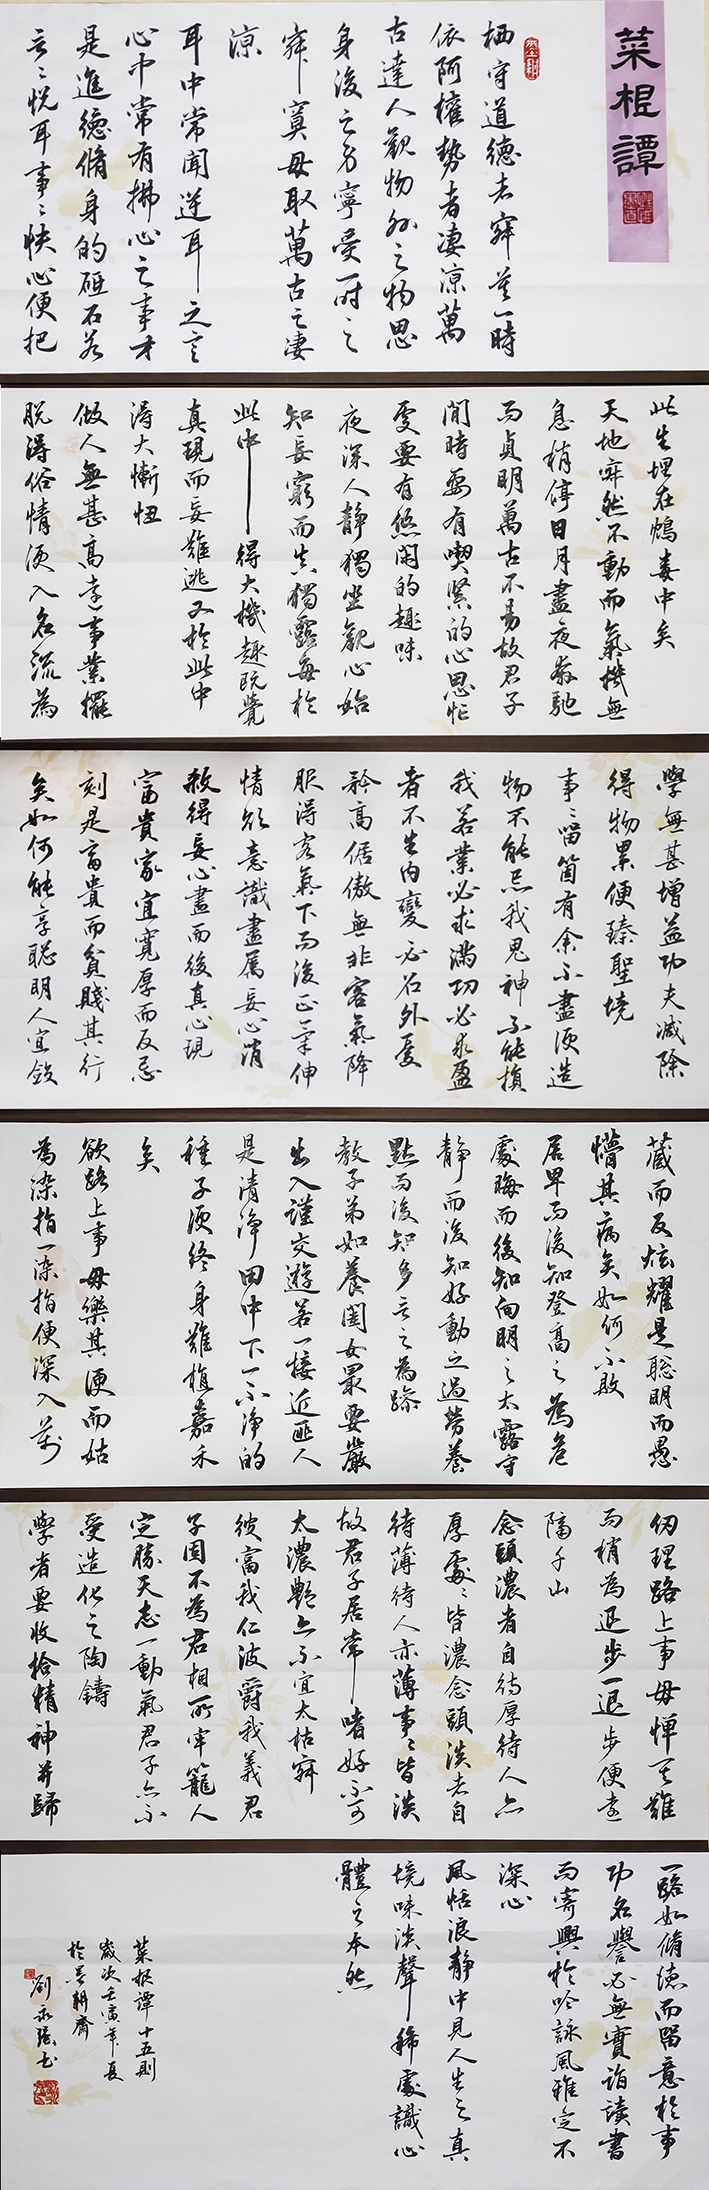 菜根譚
栖守道德者寂寞一時
依阿權勢者淒涼萬
古達人觀物外之物思
身後之身寧受一時之
寂寞毋取萬古之淒
涼
耳中常聞逆耳之言
心中常有拂心之事才
是進德脩身的砥石若
言言悅耳事事快心便把
此生埋在鴆毒中矣
天地寂然不動而氣機無
息稍停日月晝夜奔馳
而貞明萬古不易故君子
閒時要有喫緊的心思忙
處要有悠閑的趣味
夜深人靜獨坐觀心始
知妄窮而真獨露每於
此中得大機趣既覺
真現而妄難逃又於此中
得大慚忸
做人無甚高遠事業擺
脫得俗情便入名流為
學無甚增益功夫減除
得物累便臻聖境
事事留箇有余不盡便造
物不能忌我鬼神不能損
我若業必求滿功必求盈
者不生內變必召外憂
矜高倨傲無非客氣降
服得客氣下而後正氣伸
情欲意識盡屬妄心消
殺得妄心盡而後真心現
富貴家宜寬厚而反忌
刻是富貴而貧賤其行
矣如何能享聰明人宜斂
藏而反炫耀是聰明而愚
懵其病矣如何不敗
居卑而後知登高之為危
處晦而後知向明之太露守
靜而後知好動之過勞養
默而後知多言之為躁
教子弟如養閨女最要嚴
出入謹交遊若一接近匪人
是清淨田中下一不淨的
種子便終身難植嘉禾
矣
欲路上事毋樂其便而姑
為染指一染指便深入萬
仞理路上事毋憚其難
而稍為退步一退步便遠
隔千山
念頭濃者自待厚待人亦
厚處處皆濃念頭淡者自
待薄待人亦薄事事皆淡
故君子居常嗜好不可
太濃艷亦不宜太枯寂
彼富我仁彼爵我義君
子固不為君相所牢籠人
定勝天志一動氣君子亦不
受造化之陶鑄
學者要收拾精神并歸
一路如脩德而留意於事
功名譽必無實詣讀書
而寄興於吟詠風雅定不
深心
風恬浪靜中見人生之真
境味淡聲稀處識心
體之本然
菜根譚十五則
歲次壬寅年夏
於墨耕齋
劉永強書